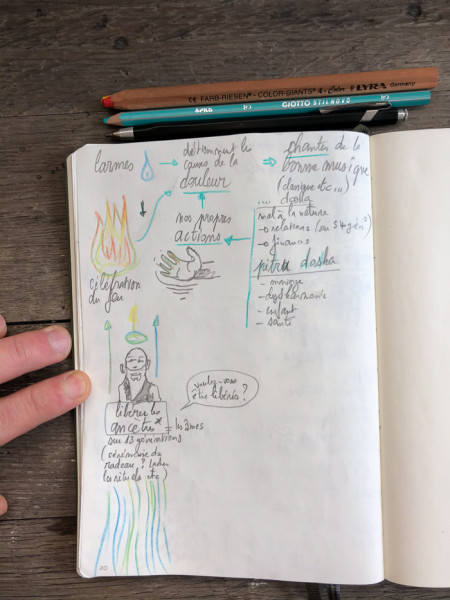 FARB-RIESEN • COLOR-GIANTS LYRA Germany
GIOTTO STILNOVO
larmes
déterminent les
causes de la
douleur
chanter de la
bonne musique
(classique etc...)
nos propres
actions
... dosha
mal à la nature
→ relations
→ finances
pitru dosha
- manque
- dysharmonie
- enfant
- santé
célébration
du feu
voulez-vous
être libérés ?
libérer les
ancêtres*
= les 3 mes
sur 13 générations
(cérémonie du
radeau, ?
les rituels etc)